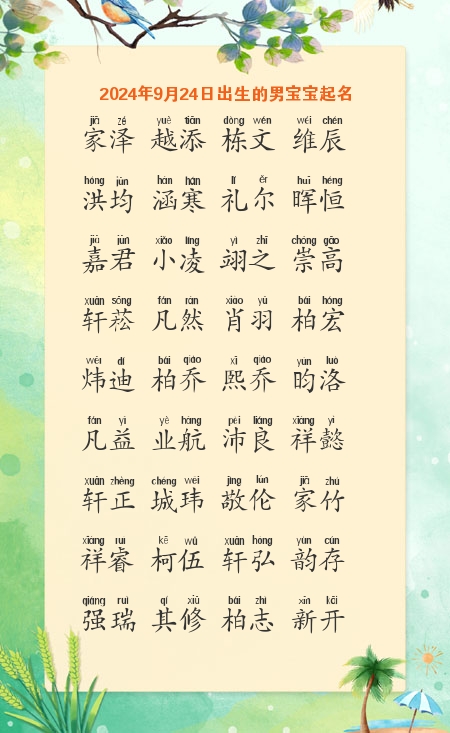 2024年9月24日出生的男宝宝起名
jiā zé yuè tiān dòng wén wéi chén
家泽 越添 栋文 维辰
hóng jūn hán hán lǐ ěr huī héng
洪均 涵寒 礼尔 晖恒
jiā jūn xiǎo líng yì zhī chóng gāo
嘉君 小凌 翊之 崇高
xuān sōng fán rán xiào yǔ bǎi hóng
轩菘 凡然 肖羽 柏宏
wěi dí bǎi qiáo xī qiáo yún luò
炜迪 柏乔 熙乔 昀洛
fán yì yè háng pèi liáng xiáng yì
凡益 业航 沛良 祥懿
xuān zhèng chéng wěi jìng lún jiā zhú
轩正 城玮 敬伦 家竹
xiáng ruì kē wǔ xuān hóng yùn cún
祥睿 柯伍 轩弘 韵存
qiáng ruì qí xiū bǎi zhì xīn kāi
强瑞 其修 柏志 新开